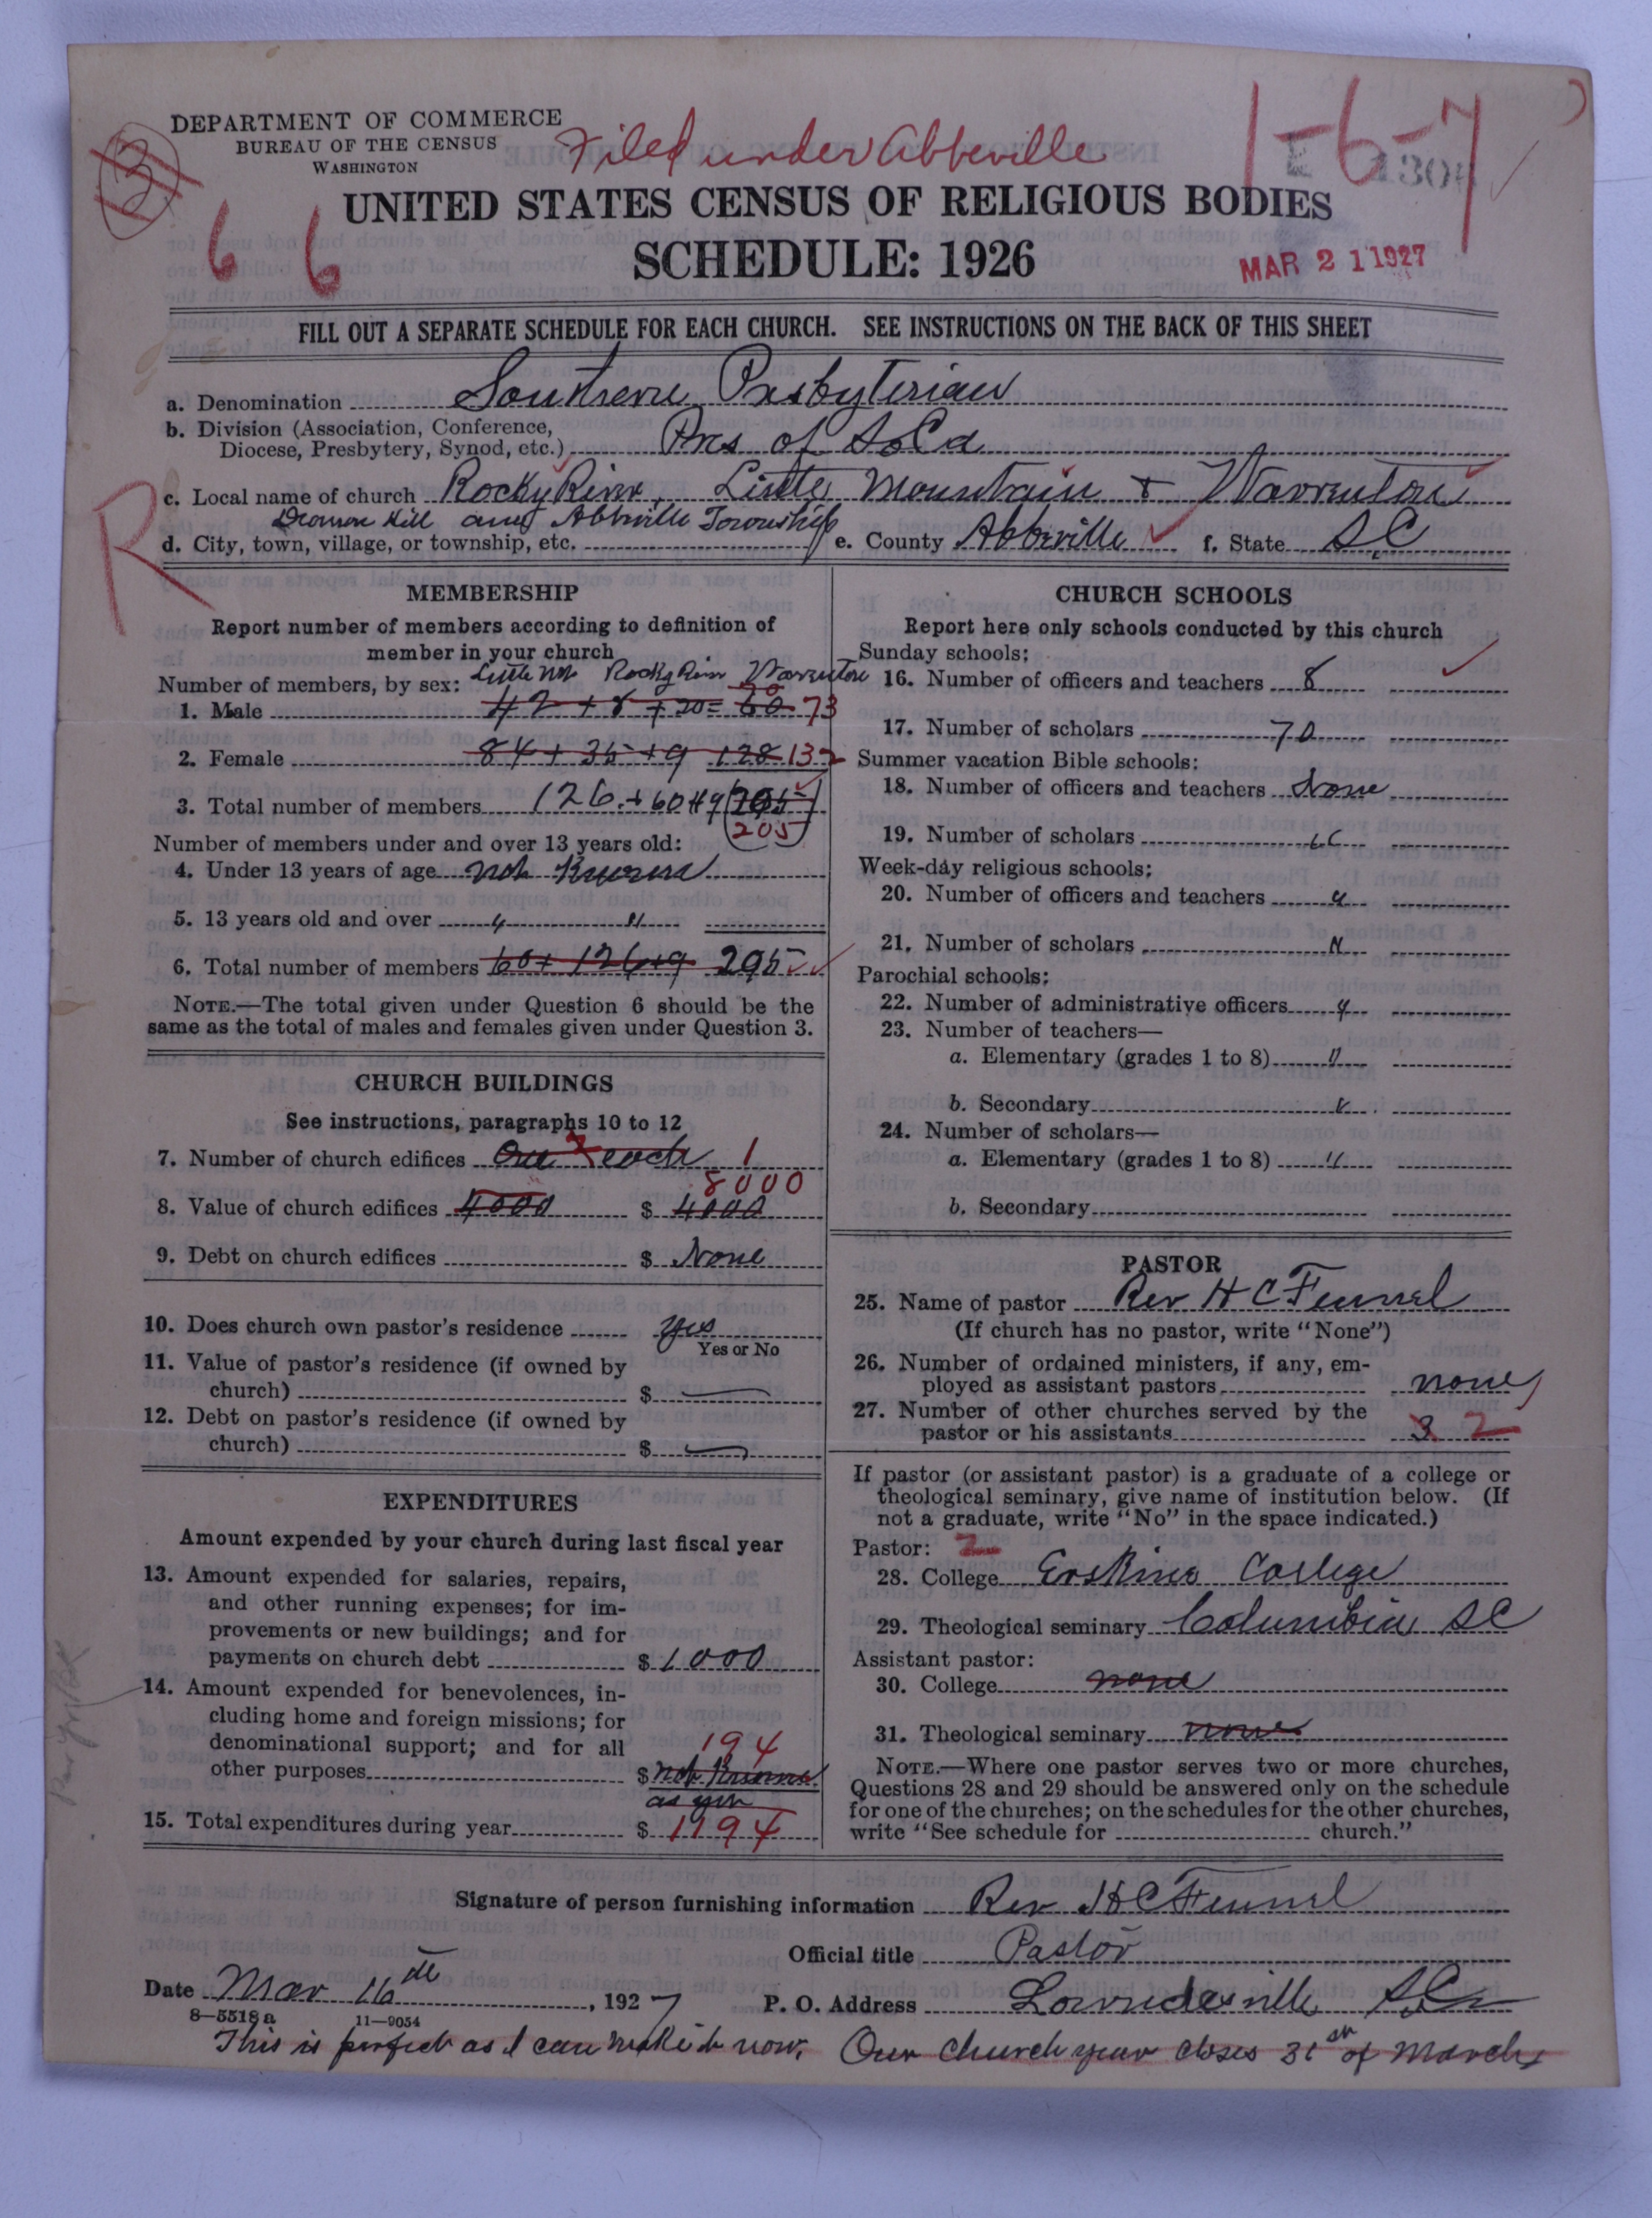 DEPARTMENT OF COMMERCE
BUREAU OF THE CENSUS
WASHINGTON
Filed under Abbeville
1-6-7
6 6
UNITED STATES CENSUS OF RELIGIOUS BODIES
SCHEDULE: 1926
MAR 21 1927
FILL OUT A SEPARATE SCHEDULE FOR EACH CHURCH. SEE INSTRUCTIONS ON THE BACK OF THIS SHEET
a. Denomination Southern Presbyterian
b. Division (Association, Conference,
Diocese, Presbytery, Synod, etc.) Pres of So Ca
c. Local name of church Rocky River, Little Mountain & Warrenton
R
Hill and Abbeville Township
d. City, town, village, or township, etc. e. County Abbeville f. State SC
MEMBERSHIP
Report number of members according to definition of
member in your church
Little Mt Rocky River Warrenton
Number of members, by sex:
1. Male 42 + 8 + 20 = 60 70 73
2. Female 84 + 35 + 9 128 132
3. Total number of members 126 + 60 + 19 205
205
Number of members under and over 13 years old:
4. Under 13 years of age not Known
5. 13 years old and over " "
6. Total number of members 60 + 126 + 9 295
NOTE.—The total given under Question 6 should be the
same as the total of males and females given under Question 3.
CHURCH BUILDINGS
See instructions, paragraphs 10 to 12
7. Number of church edifices One each 1
8000
8. Value of church edifices 4000 $ 4000
9. Debt on church edifices $ None
10. Does church own pastor's residence yes
Yes or No
11. Value of pastor's residence (if owned by
church) $ —
12. Debt on pastor's residence (if owned by
church) $ —
EXPENDITURES
Amount expended by your church during last fiscal year
13. Amount expended for salaries, repairs,
and other running expenses; for im-
provements or new buildings; and for
payments on church debt $ 1000
14. Amount expended for benevolences, in-
cluding home and foreign missions; for
denominational support; and for all
194
other purposes $ not Known
as yet
15. Total expenditures during year $ 1194
CHURCH SCHOOLS
Report here only schools conducted by this church
Sunday schools:
16. Number of officers and teachers 8
17. Number of scholars 70
Summer vacation Bible schools:
18. Number of officers and teachers None
19. Number of scholars "
Week-day religious schools:
20. Number of officers and teachers "
21. Number of scholars "
Parochial schools:
22. Number of administrative officers "
23. Number of teachers—
a. Elementary (grades 1 to 8) "
b. Secondary "
24. Number of scholars—
a. Elementary (grades 1 to 8) "
b. Secondary
PASTOR
25. Name of pastor Rev H C Fennel
(If church has no pastor, write "None")
26. Number of ordained ministers, if any, em-
ployed as assistant pastors none
27. Number of other churches served by the
pastor or his assistants 3 2
If pastor (or assistant pastor) is a graduate of a college or
theological seminary, give name of institution below. (If
not a graduate, write "No" in the space indicated.)
Pastor: 2
28. College Erskine College
29. Theological seminary Columbia SC
Assistant pastor:
30. College none
31. Theological seminary none
NOTE.—Where one pastor serves two or more churches,
Questions 28 and 29 should be answered only on the schedule
for one of the churches; on the schedules for the other churches,
write "See schedule for church."
Signature of person furnishing information Rev H C Fennel
Official title Pastor
Date Mar 16th, 1927 P. O. Address Lowndesville SC
8-5518a 11-9054
This is perfect as I can make it now. Our church year closes 31st of March